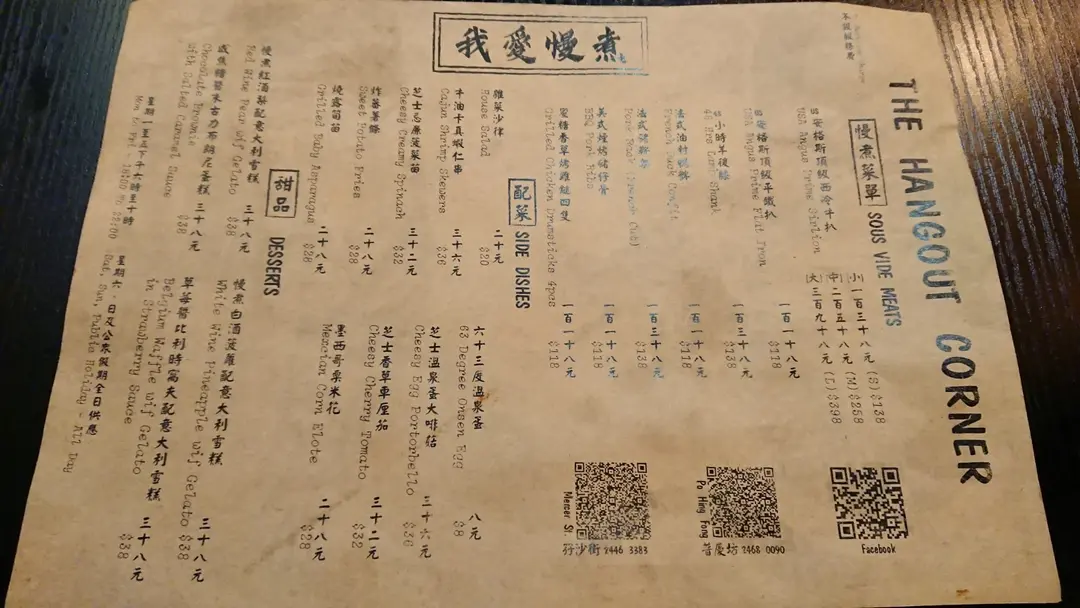 THE HANGOUT CORNER
我愛慢煮
慢煮菜單 SOUS VIDE MEATS
安格斯頂級西冷牛扒
USA Angus Prime Sirloin
小 一百三十八元 (S) $138
中 二百五十八元 (M) $258
大 三百九十八元 (L) $398
安格斯頂級平鐵扒 一百一十八元
USA Angus Prime Flat Iron $118
小時羊後膝 一百三十八元
Hrs Lamb Shank $138
法式油封鴨髀 一百一十八元
French Duck Confit $118
一百三十八元
Pork Rack (French Cut) $138
美式煙烤豬仔骨 一百一十八元
BBQ Pork Ribs $118
蜜糖香草烤雞髀四隻 一百一十八元
Grilled Chicken Drumsticks 4pcs $118
配菜 SIDE DISHES
雜菜沙律 二十元
House Salad $20
牛油卡真蝦仁串 三十六元
Cajun Shrimp Skewers $36
芝士忌廉菠菜苗 三十二元
Cheesy Creamy Spinach $32
炸蕃薯條 二十八元
Sweet Potato Fries $28
燒露筍苗 二十八元
Grilled Baby Asparagus $28
六十三度溫泉蛋 八元
63 Degree Onsen Egg $8
芝士溫泉蛋大啡菇 三十六元
Cheesy Egg Portorbello $36
芝士香草車厘茄 三十二元
Cheesy Cherry Tomato $32
墨西哥粟米花 二十八元
Mexcian Corn Elote $28
甜品 DESSERTS
慢煮紅酒梨配意大利雪糕 三十八元
Red Wine Pear wif Gelato $38
鹹焦糖醬朱古力布朗尼蛋糕 三十八元
Chocolate Brownie $38
with Salted Caramel Sauce
慢煮白酒菠蘿配意大利雪糕 三十八元
White Wine Pineapple wif Gelato $38
草莓醬比利時窩夫配意大利雪糕 三十八元
Belgium Waffle wif Gelato $38
in Strawberry Sauce
星期一至五下午六時至十時
Mon to Fri - 18:00 to 22:00
星期六、日及公眾假期全日供應
Sat, Sun, Public Holiday - All Day
Facebook
Po Hing Fong
普慶坊 2468 0090
Mercer St.
孖沙街 2446 3383